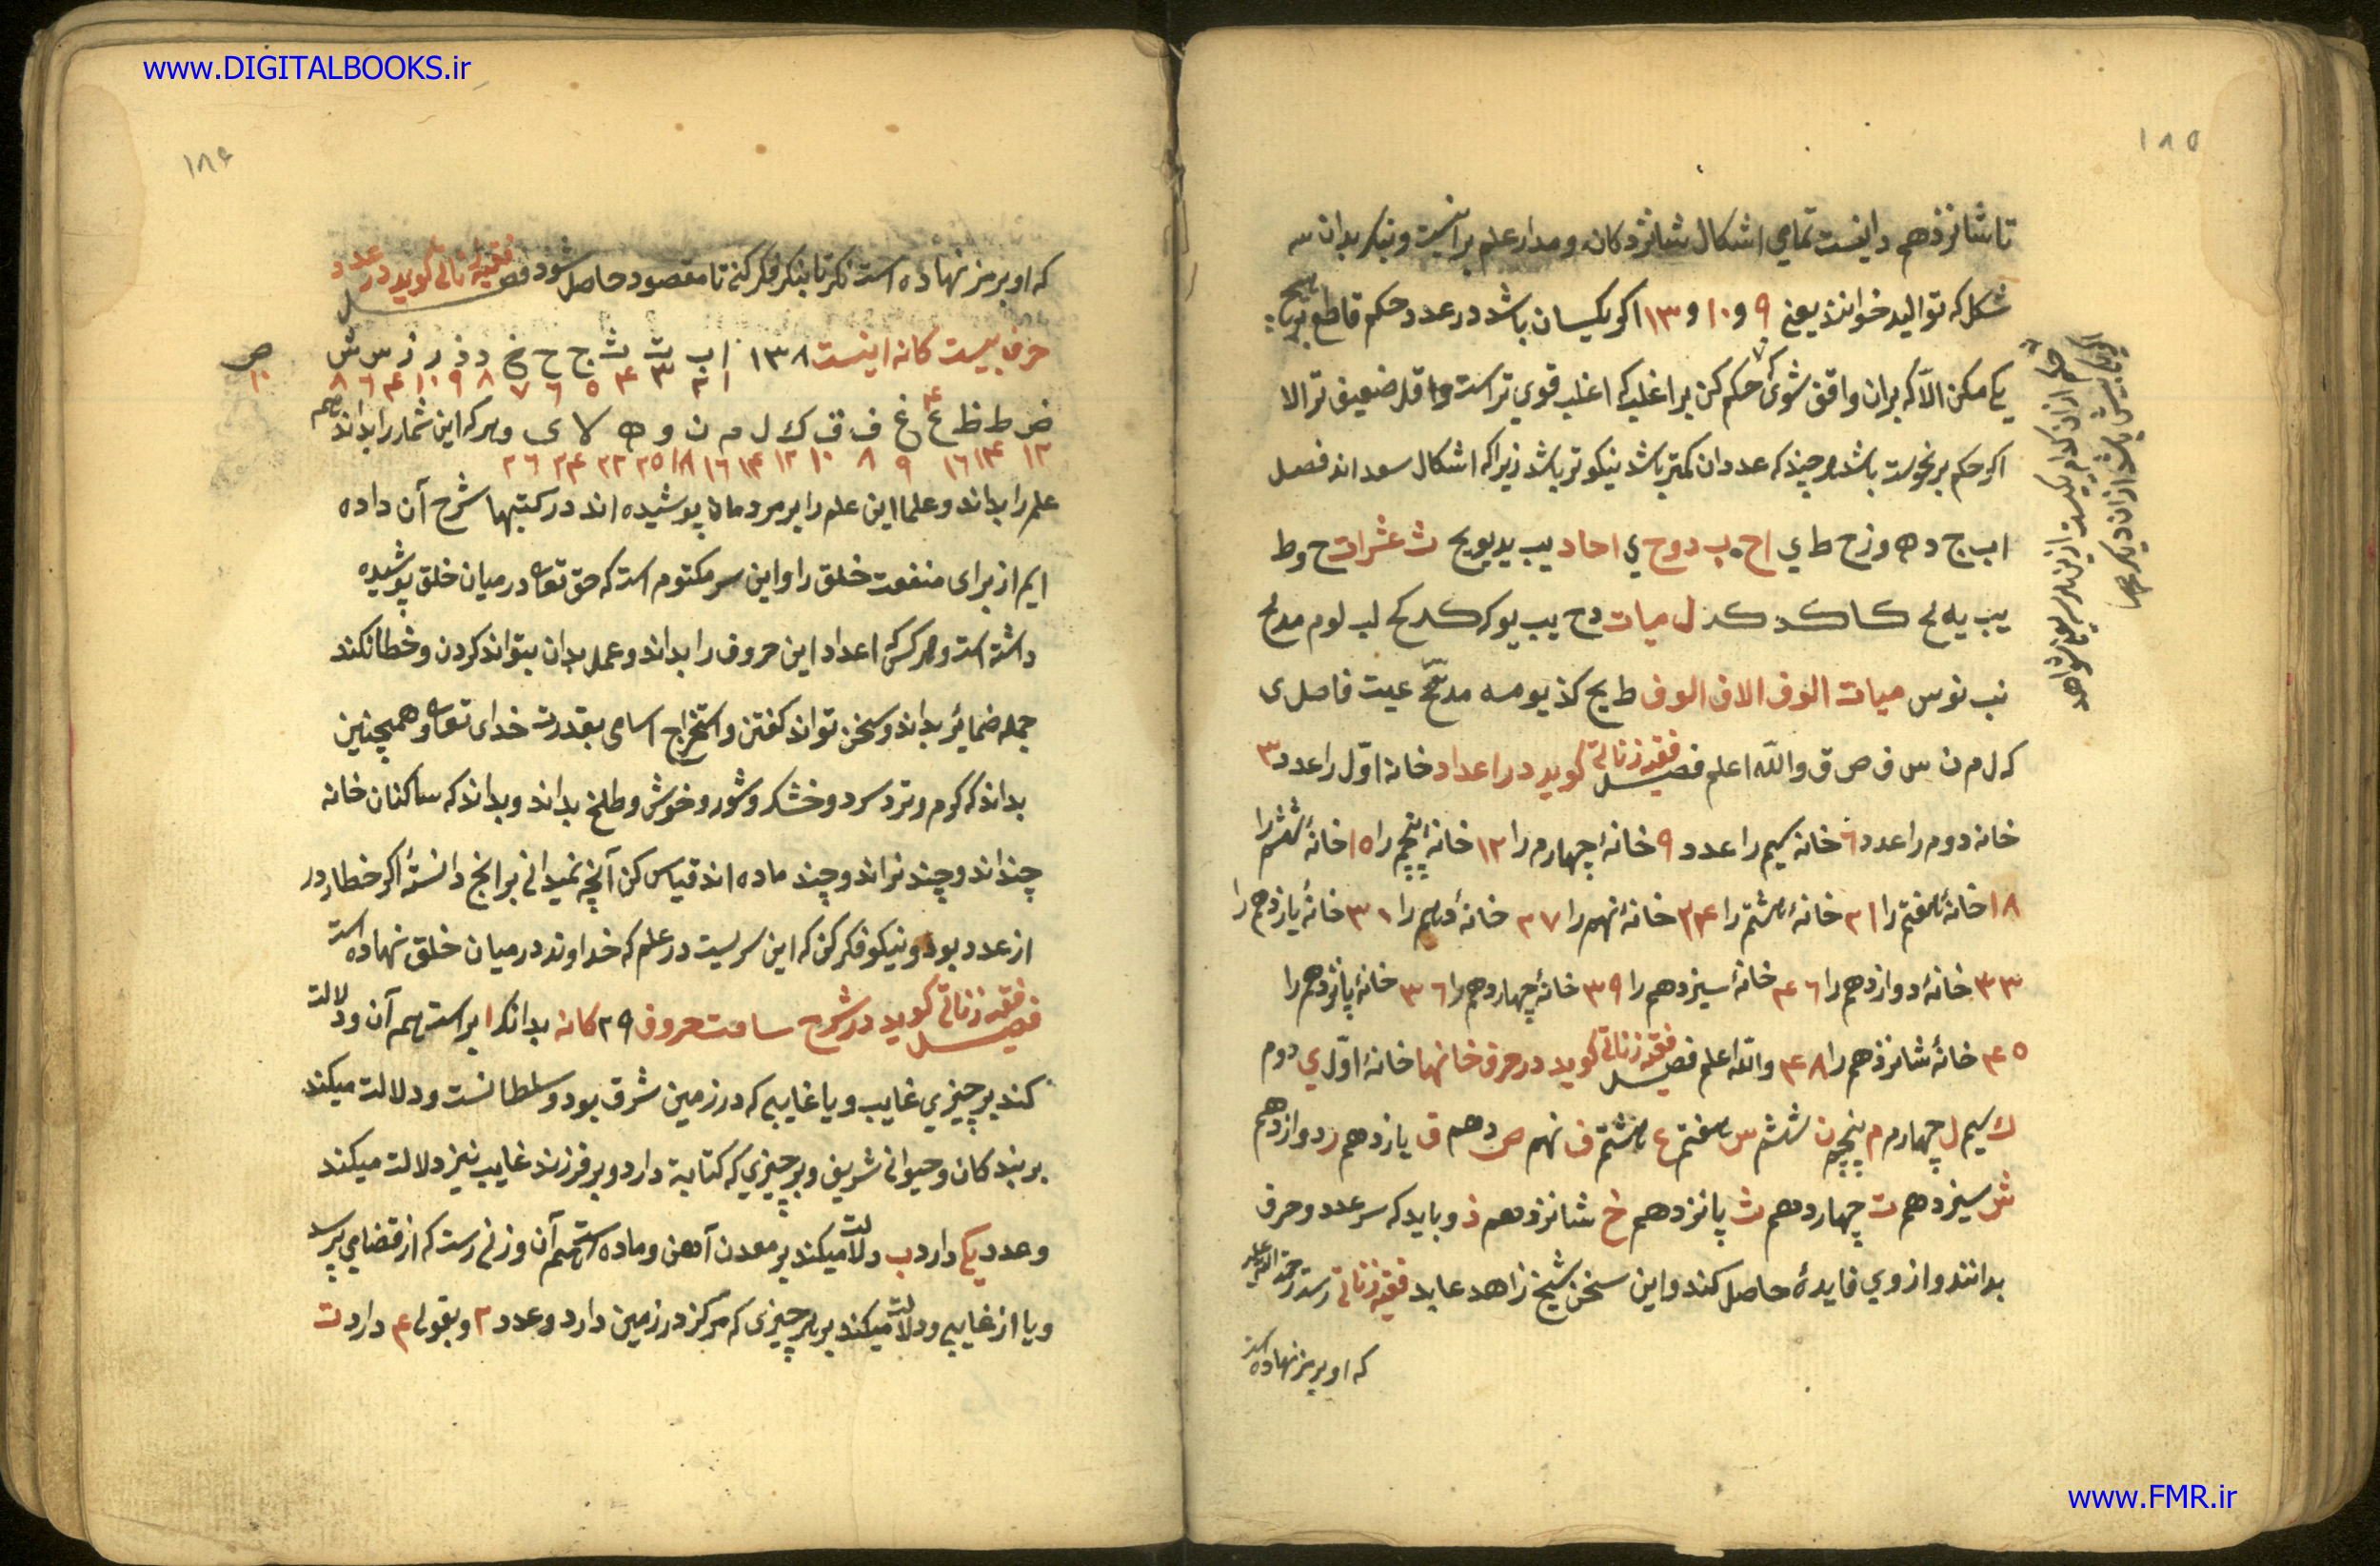 www.DIGITALBOOKS.ir
١٨٥
تا شانزدهم دانیست تمامی اشکال شانزدکانه ومدار علم براینست ونیکر بدان سه
شکل که توالید خوانند یعنی ٩ و ١٠ و ١٣ اکر یکسان باشد در عدد حکم قاطع بر هیچ
یکی مکن الّا که بران واقف شوی حکم کن بر اغلب که اغلب قوی تر است و اقل ضعیف تر الا
اکر حکم بر نحوست باشد هرچند که عدد ان کمتر باشد نیکوتر باشد زیرا که اشکال سعد اند فصل
ا ب ج د ه و ز ح ط ي اح ب د و ح ي احاد یب ید یو یح ث عشرات ح و ط
یب یه لح کا کد کز ل میات دح یب یو ک کد کح لب لو م مد مح
نب نو س میات الوف الاف الوف ط یح کذ یو مه مد عیت فاصل ی
که ل م ن س ف ص ق والله اعلم فصل فقیه زناتی کوید در اعداد خانه اوّل را عدد ٣
خانه دوم را عدد ٦ خانه سیم را عدد ٩ خانهٔ چهارم را ١٢ خانهٔ پنجم را ١٥ خانهٔ ششم را
١٨ خانهٔ هفتم را ٢١ خانهٔ هشتم را ٢۴ خانهٔ نهم را ٢٧ خانهٔ دهم را ٣١ خانهٔ یازدهم را
٣٣ خانهٔ دوازدهم را ۴٦ خانهٔ سیزدهم را ٣٩ خانهٔ چهاردهم را ٣٦ خانهٔ پانزدهم را
۴٥ خانهٔ شانزدهم را ۴٨ والله اعلم فصل فقیه زناتی کوید در حرف خانها خانهٔ اوّل ي دوم
ك سیم ل چهارم م پنجم ن ششم س هفتم ع هشتم ف نهم ص دهم ق یازدهم ر دوازدهم
ش سیزدهم ت چهاردهم ث پانزدهم خ شانزدهم ذ و باید که سر عدد و حرف
بدانند و از وي فایدهٔ حاصل کند و این سخن شیخ زاهد عابد فقیه زناتی رست رحمة الله علیه
که او برمز نهاده است
١٨۶
که او برمز نهاده است نکر تا بنکر فکر کنی تا مقصود حاصل شود فصل فقیه زناتی کوید در عدد
حرف بیست کانه اینست ١٣٨ ا ب ت ث ج ح خ د ذ ر ز س ش ص
١ ٢ ٣ ۴ ٥ ٦ ٧ ٨ ٩ ١٠ ۴ ٦ ٨ ١٠
ض ط ظ ع غ ف ق ك ل م ن و ه لا ی و هرکه این شمار را بداند همه
١٢ ١۴ ١٦ ٩ ٨ ١٠ ١٢ ١۴ ١٦ ١٨ ٢٥ ٢٢ ٢۴ ٢٦
علم را بداند و علما این علم را بر مردمان پوشیده اند در کتبها شرح آن داده
ایم از برای منفعت خلق را و این سر مکتوم است که حق تعالی در میان خلق پوشیده
داشته است و هرکس که اعداد این حروف را بداند و عمل بدان بتواند کردن و خطا نکند
جمله ضمایر بداند و سخن تواند کفتن و استخراج اسامی بقدرت خدای تعالی و همچنین
بداند که کرم و تر و سرد و خشک و شور و خوش و طلخ بداند و بداند که ساکنان خانه
چند اند و چند نر اند و چند ماده اند قیاس کن آنچه نمیدانی بر انچ دانستهٔ اکر خطا رود
از عدد بود و نیکو فکر کن که این سریست در علم که خداوند در میان خلق نهاده است
فصل فقیه زناتی کوید در شرح سامت حروف ٢٩ کانه بدانک ا براست هم آن و دلالت
کند بر چیزي غایب و یا غایبی که در زمین شرق بود و سلطانست و دلالت میکند
بر بندکان و حیوانی شریف و بر چیزي که کتابة دارد و بر فرزند غایب نیز دلالت میکند
و عدد یکی دارد ب دلالت میکند بر معدن آهن و ماده است هم آن و زنی رست که از قضا می پرسد
و یا از غایبی و دلالت میکند بر هر چیزی که مرکز در زمین دارد و عدد ٢ و بقولی ۴ دارد ت
www.FMR.ir